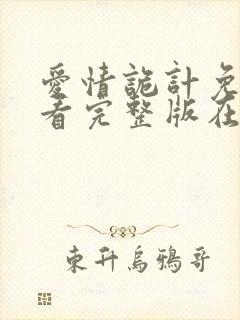 愛情詭計免
看完整版在
東升烏鴉哥